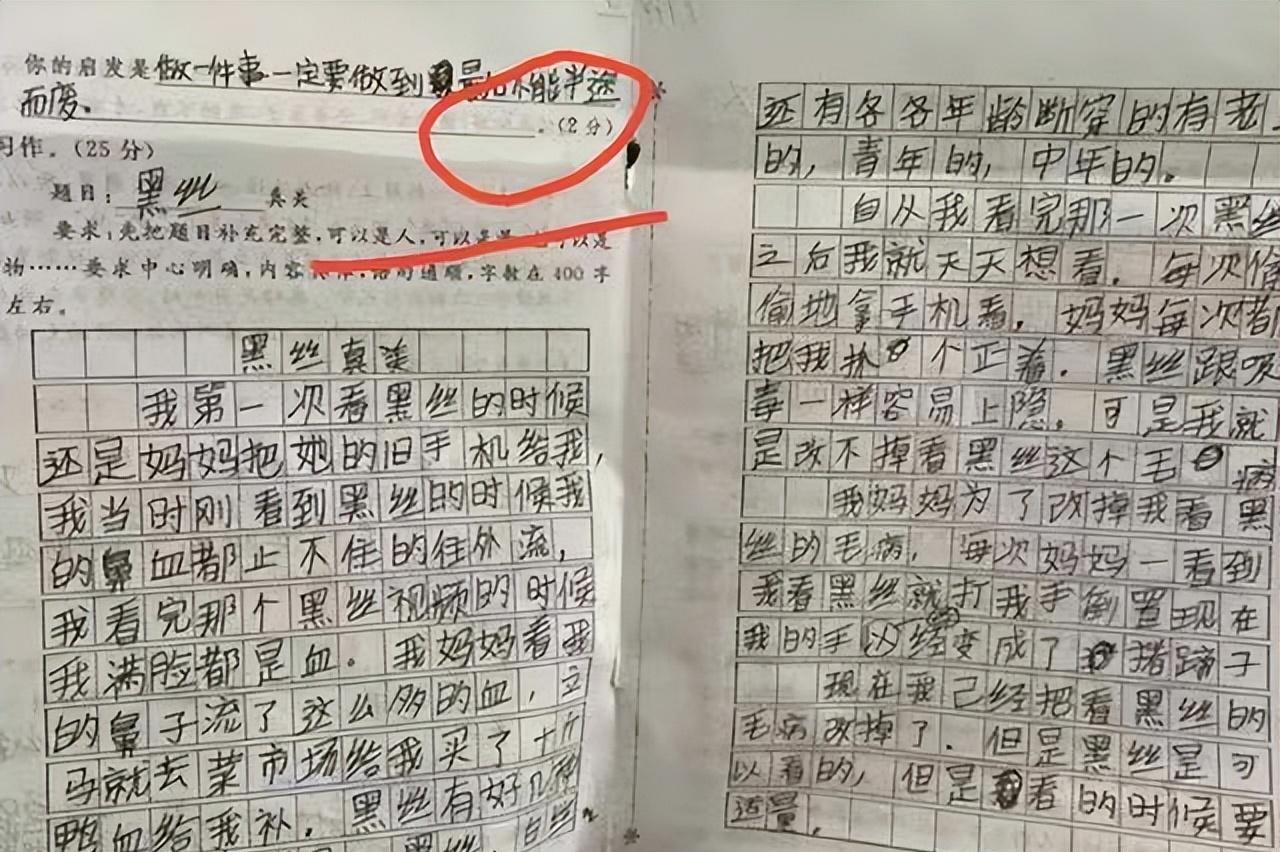 你的启发是做一件事一定要做到最后不能半途
而废。。(2分)
习作。(25分)
题目:黑丝真美
要求:先把题目补充完整,可以是人,可以是
物……要求中心明确,内容语句通顺,字数在400字
左右。
黑丝真美
我第一次看黑丝的时候
还是妈妈把她的旧手机给我,
我当时刚看到黑丝的时候我
的鼻血都止不住的住外流,
我看完那个黑丝视频的时候
我满脸都是血。我妈妈看我
的鼻子流了这么多的血,立
马就去菜市场给我买了十斤
鸭血给我补.黑丝有好几种
白丝
还有各各年龄断穿的有老
的,青年的,中年的。
自从我看完那一次黑丝
之后我就天天想看.每次偷
偷地拿手机看.妈妈每次都
把我抓个正着.黑丝跟吸
毒一样容易上隐.可是我就
是改不掉看黑丝这个毛病
我妈妈为了改掉我看黑
丝的毛病.每次妈妈一看到
我看黑丝就打我手倒置现在
我的手以经变成了猪蹄子
现在我己经把看黑丝的
毛病改掉了.但是黑丝是可
以看的,但是看的时候要
适量.